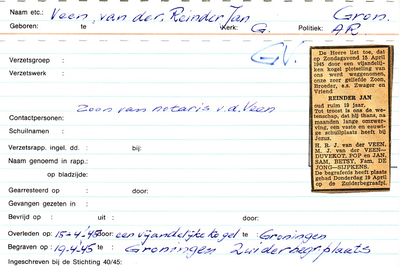 Naam etc.: Veen, van der, Reinder Jan Gron.
Geboren: te Kerk: G. Politiek: AR
GV.
Verzetsgroep :
Verzetswerk :
zoon van notaris v.d. Veen
Contactpersonen:
Schuilnaam :
Verzetsrapp. ingel. dd. : bij:
Naam genoemd in rapp.:
op bladzijde:
Gearresteerd op : door:
Gevangen gezeten in :
Bevrijd op : uit : door:
Overleden op: 15-4-'45 door een vijandelijke kogel te Groningen
Begraven op : 19.4.'45 te Groningen Zuiderbegr.plaats
Ingeschreven bij de Stichting 40/45:
De Heere liet toe, dat
op Zondagavond 15 April
1945 door een vijandelij-
ken kogel plotseling van
ons werd weggenomen,
onze zeer geliefde Zoon,
Broeder, a.s. Zwager en
Vriend
REINDER JAN
oud ruim 19 jaar.
Tot troost is ons de we-
tenschap, dat hij thans, na
maanden lange omzwer-
ving, een vaste en eeuwi-
ge schuilplaats heeft bij
Jezus.
H. R. J. v.d. VEEN
M. J. v.d. VEEN—
DUVEKOT, POP en JAN,
SAM, BETSY, Fam. DE
JONG—SIJPKENS.
De begrafenis heeft plaats
gehad Donderdag 19 April
op de Zuiderbegraafpl.